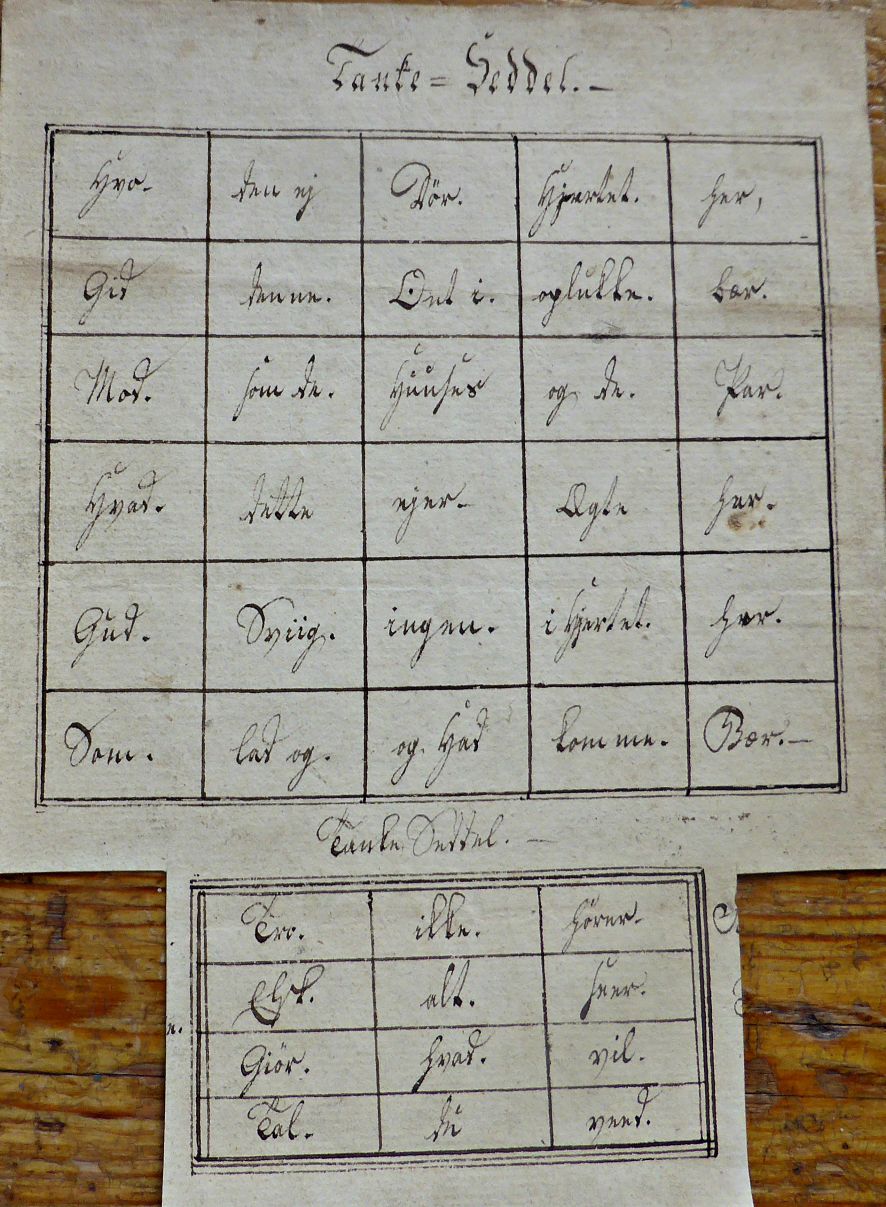 Tanke=Seddel.—
Hvo- den ej Dör. Hjertet. her,
Gid denne. Ont i. oplukke. bær.
Mod. som de. Huuses og de. Par.
Hvad. dette ejer- Ægte her.
Gud. Sviig. ingen. i Hjertet. her.
Som. lad og. og. Had komme. Bær.—
Tanke Seddel.—
Tro. ikke. hörer.
Elsk. alt. seer.
Giör. hvad. vil.
Tal. du veed.